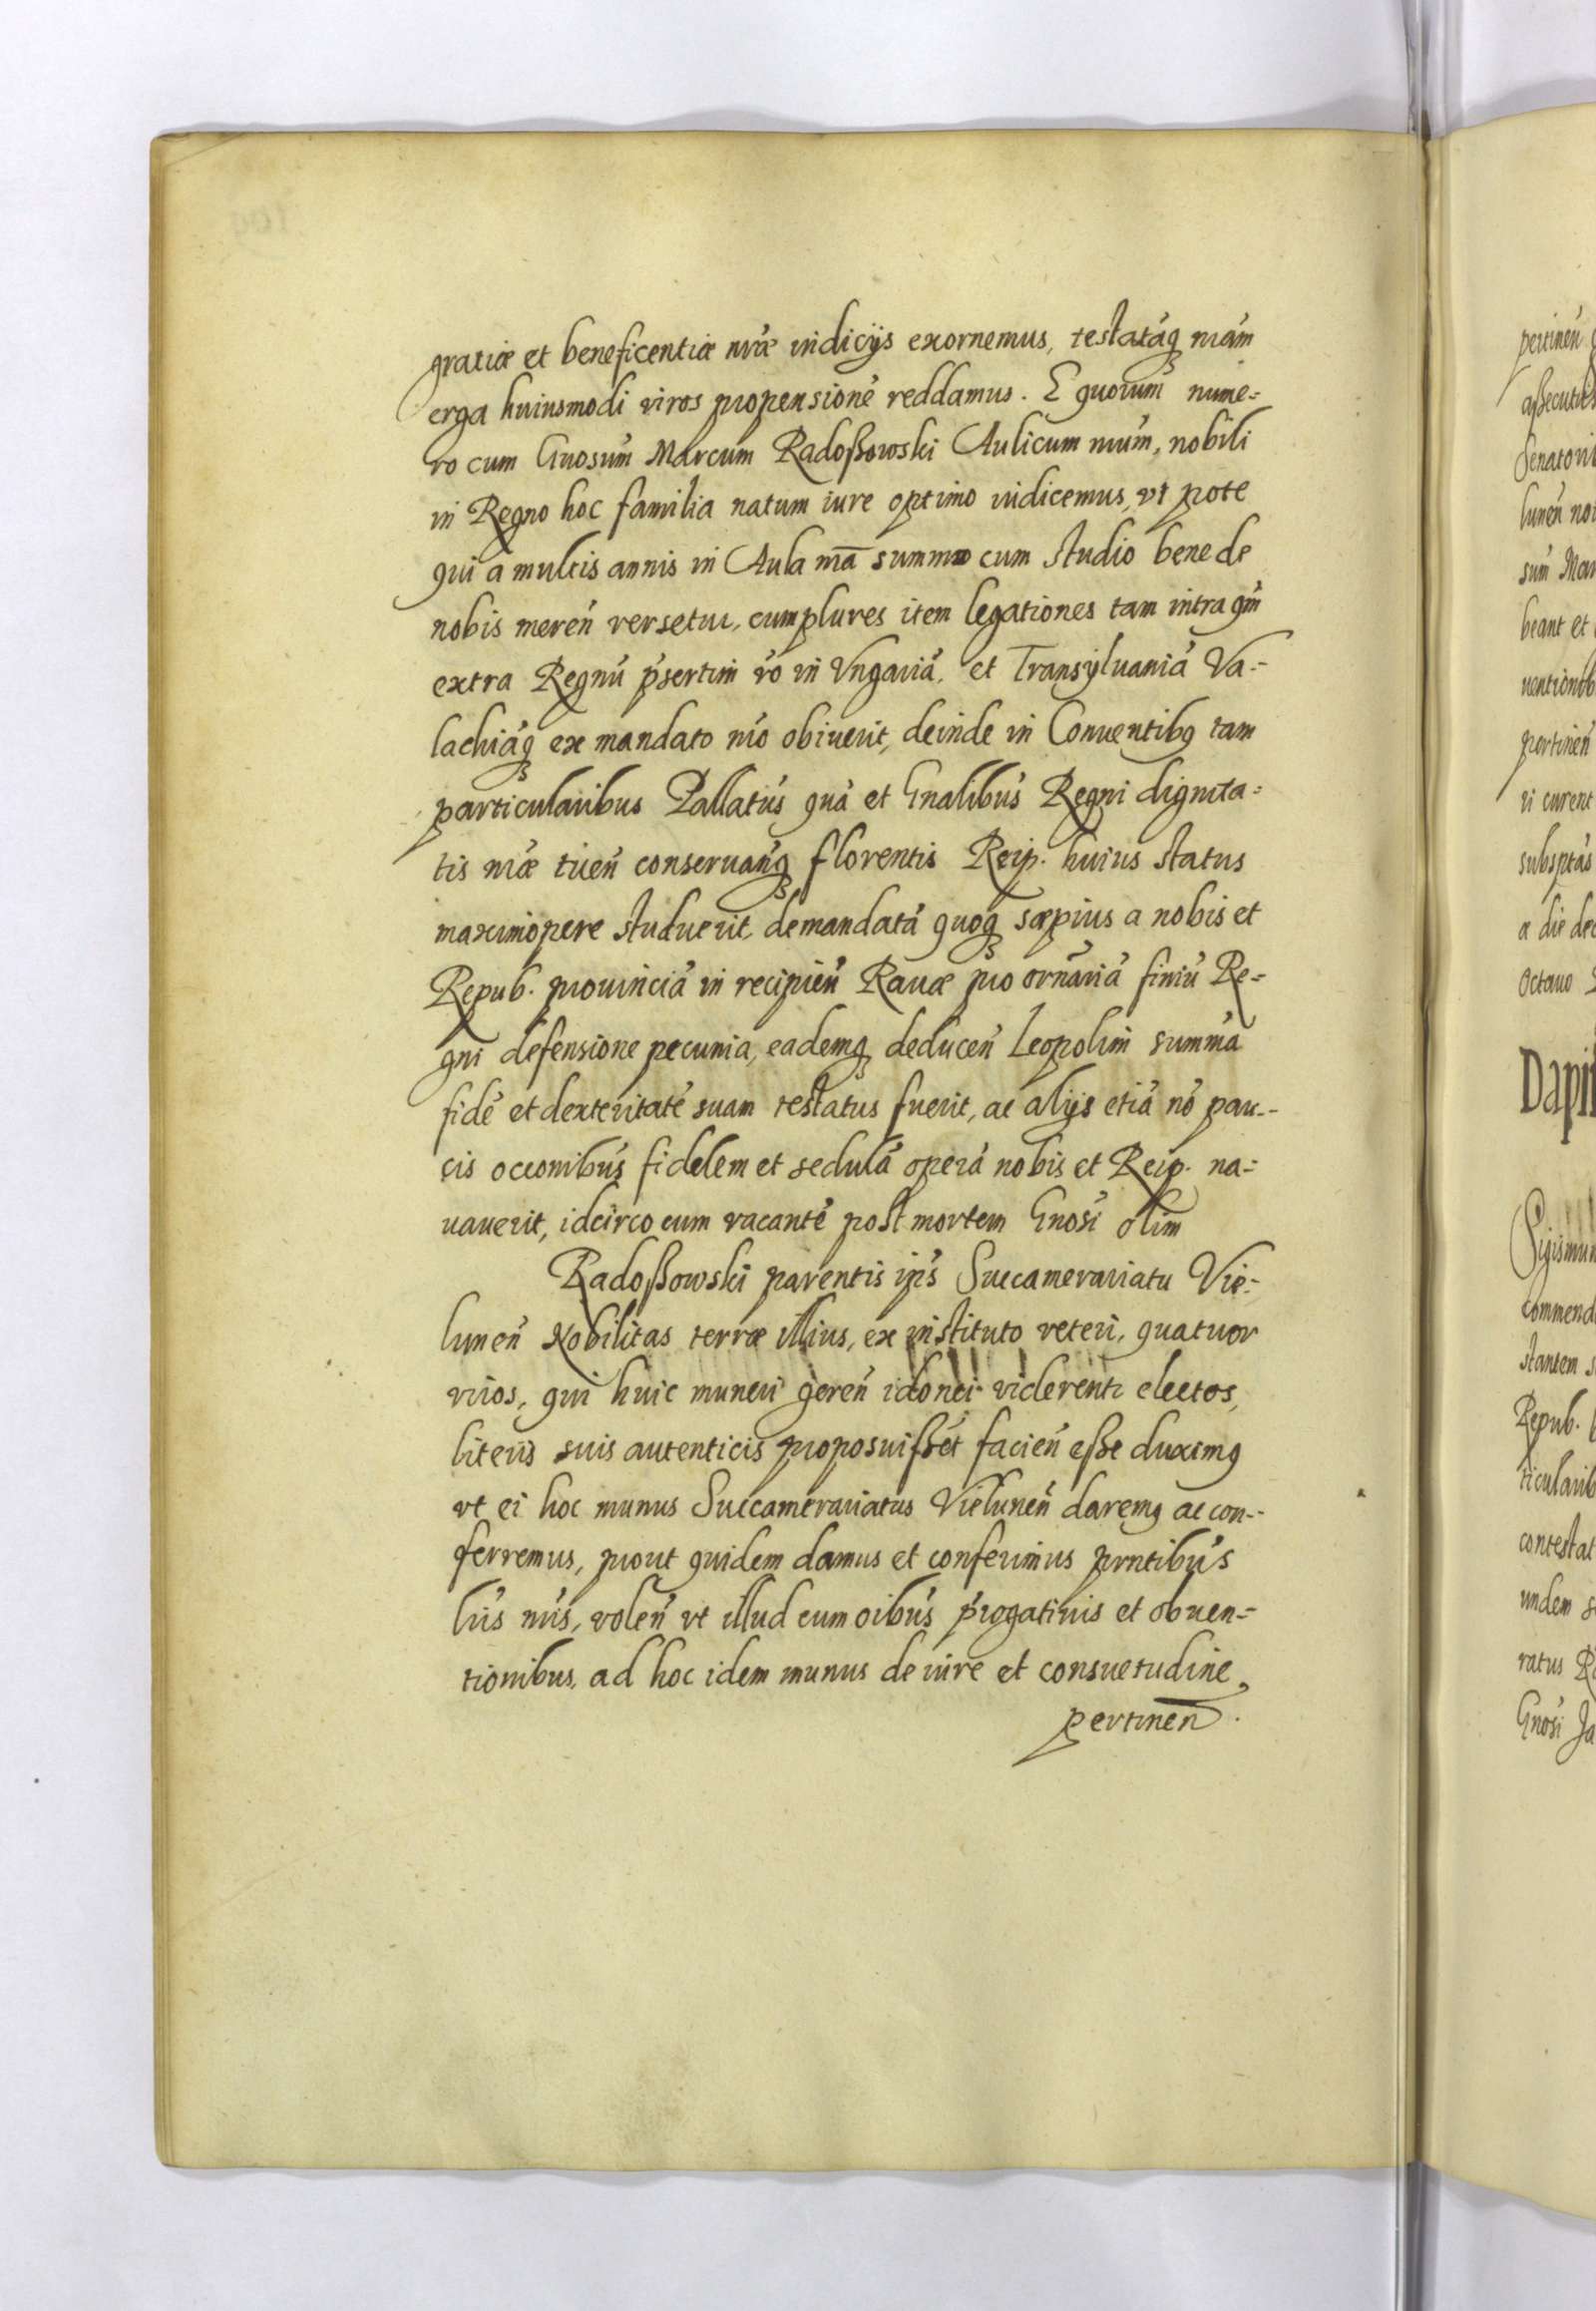 gratiæ et beneficentiæ nræ indicijs exornemus, testatáq; nrám
erga huiusmodi viros propensioné reddamus. E quorum nume=
ro cum Gnosum Marcum Radoßowski Aulicum nrum, nobili
in Regno hoc familia natum iure optimo iudicemus, vt pote
qui a multis annis in Aula nrā summo cum studio bene de
nobis mereń versetur, cumplures item legationes tam intra qm
extra Regnú psertim vo in Vngariá, et Transyluaniá Va=
lachiáq; ex mandato nro obiuerit, deinde in Conuentibq tam
particularibus Pallatús quá et Gnalibus Regni dignita=
tis nræ tueń conseruańq; florentis Reip. huius status
maximopere studuerit, demandatá quoq; sæpius a nobis et
Repub. prouinciá in recipień Rauæ pro ornariá finiú Re=
gni defensione pecunia, eademq; deduceń Leopolim summá
fidé et dexteritaté suam testatus fuerit, ac alijs etiá nó pau=
cis occonibus fidelem et sedulá operá nobis et Reip. na=
uauerit, idcirco cum vacanté post mortem Gnosi olim
Radoßowski parentis ips Succamerariatu Vie=
luneń Nobilitas terræ illius, ex instituto veteri, quatuor
viros, qui huic muneri gereń idonei viderentr electos,
literis suis autenticis proposuißet facień eße duximq
vt ei hoc munus Succamerariatus Vieluneń daremq ac con=
ferremus, prout quidem damus et conferimus prntibus
lris nris, voleń vt illud cum oibus progatiuis et obuen=
tionibus, ad hoc idem munus de iure et consuetudine
pertineń.
pertineń
aßecutus
Senatori
luneń
sum Mar
beant et
uentionib
pertineń
ri curent
subsptás
a die
Octauo
Sigismun
commend
stantem
Repub.
ticularib
contestat
undem
ratus
Gnosi Ja